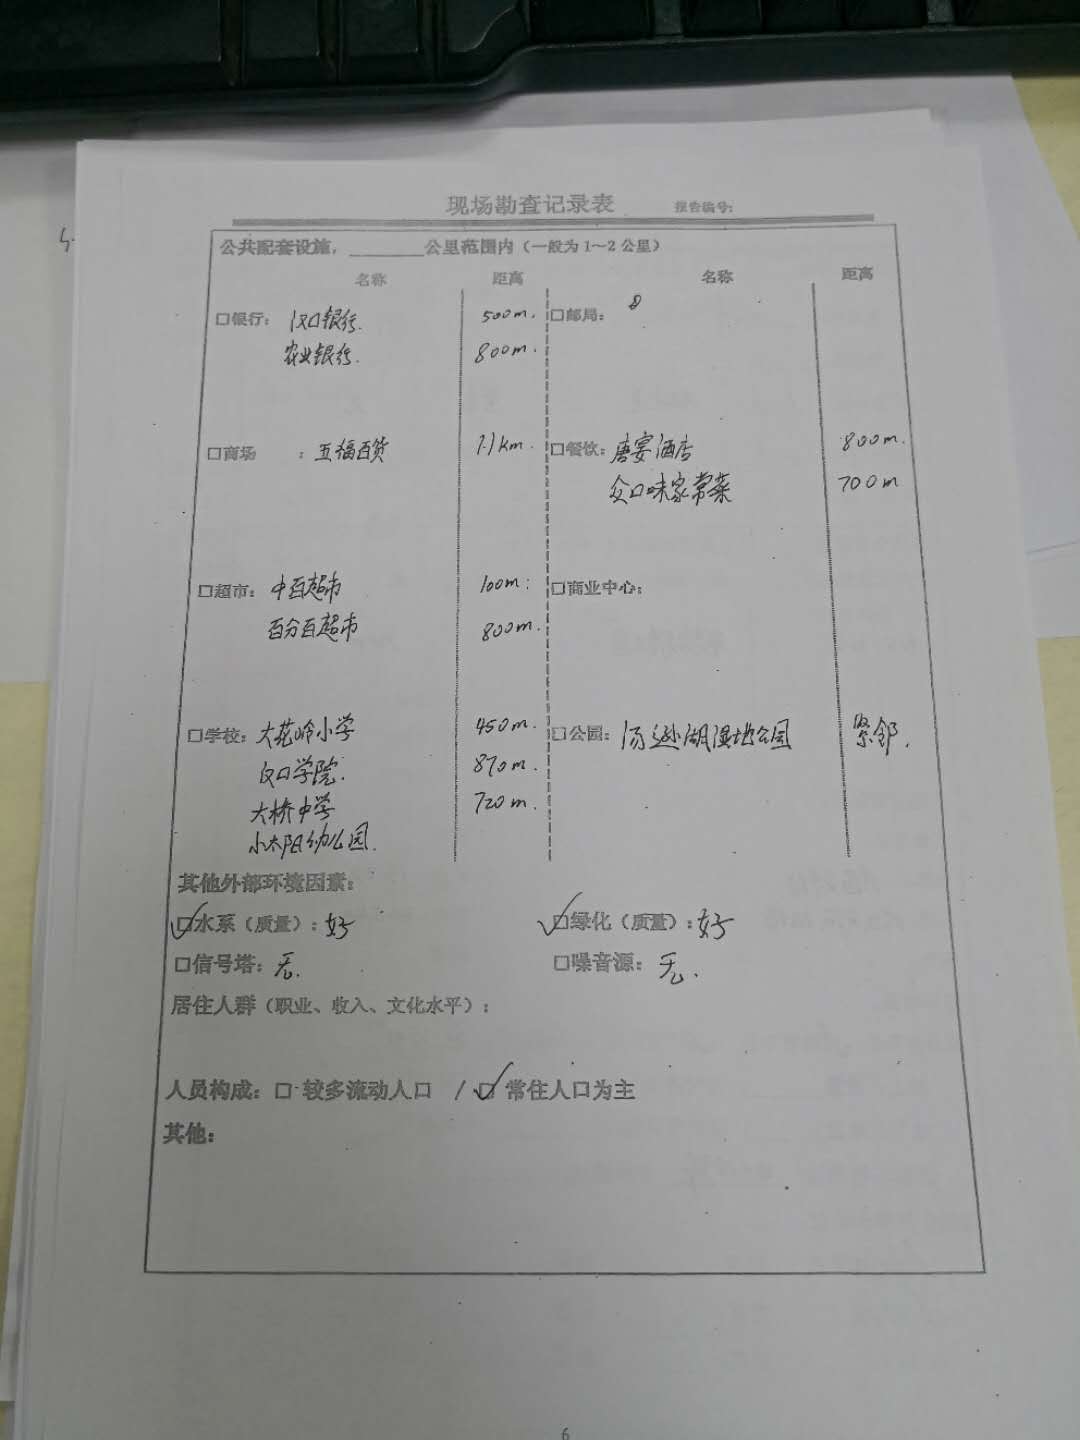 现场勘查记录表 报告编号:
公共配套设施，________公里范围内（一般为1～2公里）
名称 距离 名称 距离
□银行： 汉口银行. 500m. □邮局：
农业银行. 800m.
□商场 ：五福百货 1.1km. □餐饮：唐宴酒店 800m.
众口味家常菜 700m
□超市：中百超市 100m. □商业中心：
百分百超市 800m.
□学校：大花岭小学 450m. □公园：汤逊湖湿地公园 紧邻.
汉口学院. 870m.
大桥中学 720m.
小太阳幼儿园.
其他外部环境因素：
☑水系（质量）：好 ☑绿化（质量）：好
□信号塔：无. □噪音源：无.
居住人群（职业、收入、文化水平）：
人员构成：□ 较多流动人口 / ☑ 常住人口为主
其他：
6